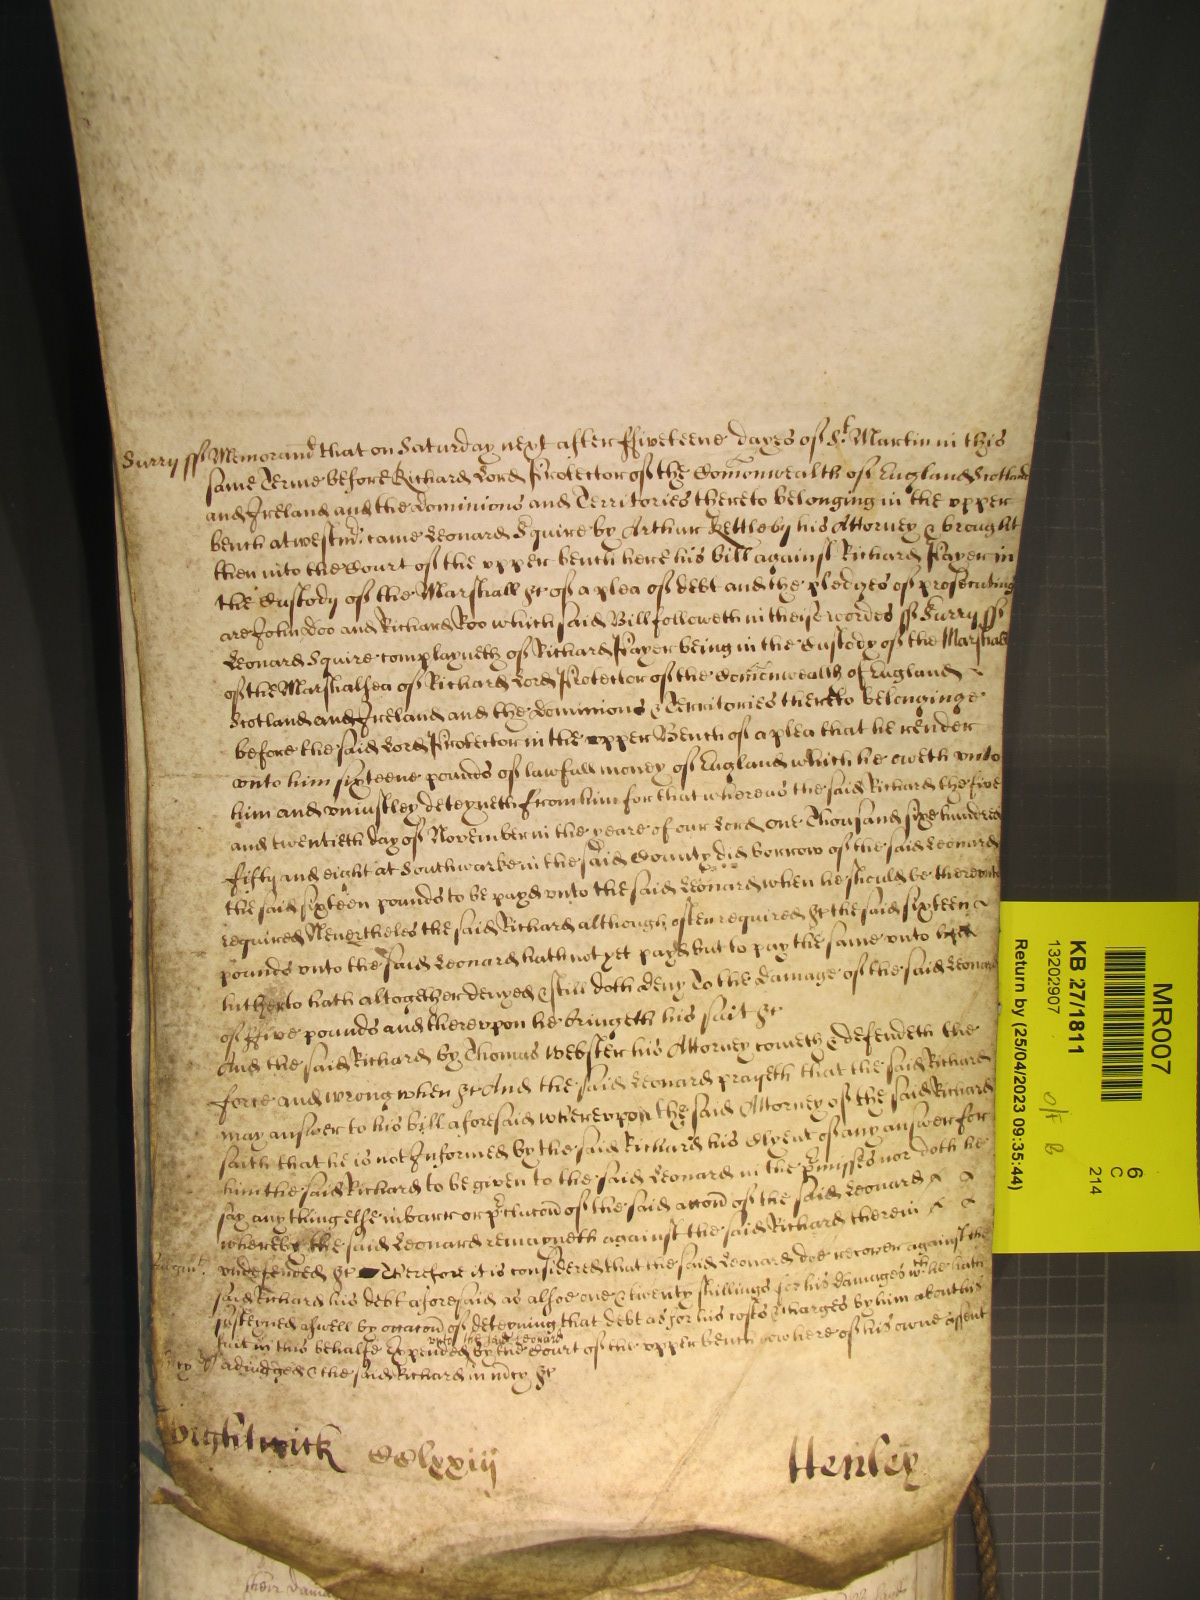 Surry ss Memorand that on Saturday next after ffiveteene dayes of St Martin in this
same Terme before Richard Lord Protector of the Comonwealth of England Scotland
and Ireland and the Dominions and Territories thereto belonging in the upper
bench at westmr came Leonard Squire by Arthur Kettleby his Attorney & brought
then into the Court of the upper bench here his bill against Richard Payer in
the Custody of the Marshall &c of a plea of debt and the pledges of prosecuting
are John Doo and Richard Roo which said Bill followeth in theise wordes ss Surry ss
Leonard Squire complayneth of Richard Payer being in the Custody of the Marshall
of the Marshalsea of Richard Lord Protector of the Comonwealth of England
Scotland and Ireland and the Dominions & Territories thereto belonginge
before the said Lord Protector in the upper Bench of a plea that he render
unto him sixteene pounds of lawfull money of England which he oweth unto
him and uniustley deteyneth from him for that whereas the said Richard the five
and twentieth day of November in the yeare of our Lord one Thousand sixe hundred
fifty and eight at Southwarke in the said County did borrow of the said Leonard
the said sixteen pounds to be payd unto the said Leonard when he should be thereunto
required Nevertheles the said Richard although often required &c the said sixteen
pounds unto the said Leonard hath not yet payd but to pay the same unto him
hitherto hath altogether denyed & still doth deny To the damage of the said Leonard
of ffive pounds and thereupon he bringeth his suit &c
And the said Richard by Thomas Webster his Attorney cometh & defendeth the
force and wrong when &c And the said Leonard prayeth that the said Richard
may answer to his bill aforesaid whereupon the said Attorney of the said Richard
saith that he is not Informed by the said Richard his Clyent of any answer for
him the said Richard to be given to the said Leonard in the pmisses nor doth he
say any thing else in barr or pclucon of the said accon of the said Leonard
whereby the said Leonard remayneth against the said Richard therein
Judgmt undefended &c Therefore it is considered that the said Leonard doe recover against the
said Richard his debt aforesaid as alsoe one & twenty shillings for his damages wch he hath
susteyned aswell by occacon of deteyning that debt as for his costs & charges by him about his
unto the said Leonard
suit in this behalfe expended by the Court of the upper bench now here of his owne assent
adiudged & the said Richard in mcy &c
Wightwick CClxxiij Henley
MR007
KB 27/1811
13202907
Return by (25/04/2023 09:35:44)
6
C
214